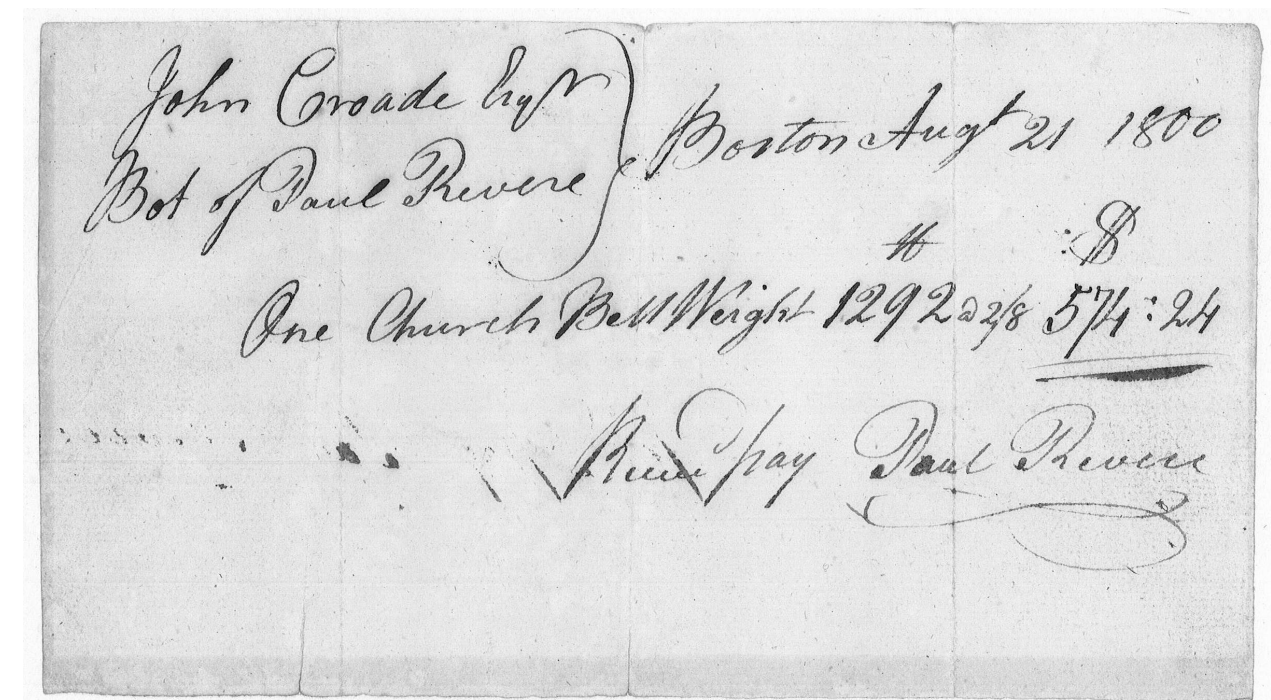 John Croade Esqr
Bot of Paul Revere
Boston Augt 21 1800
℔ $
One Church Bell Weight 1292 @ 2/8 574:24
Recd pay Paul Revere